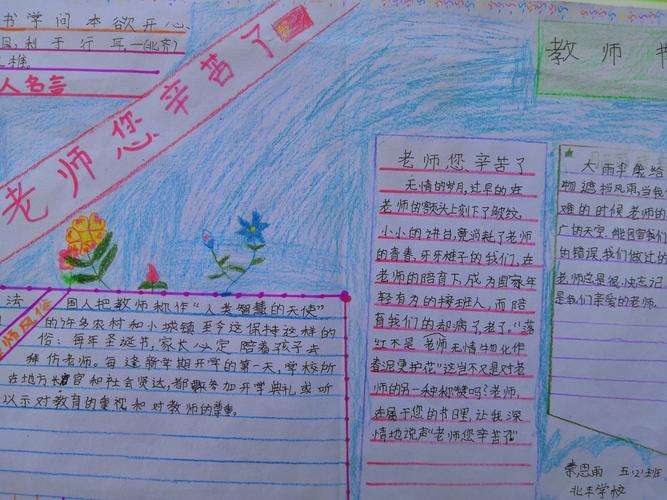 书学问本欲开心
目,利于行耳,一(北齐)
之推。
人名言
老师您辛苦了
教师书
法国人把教师称作"人类智慧的天使"
的许多农村和小城镇至今还保持这样的
俗:每年圣诞节,家长必定陪着孩子去
拜访老师。每逢新学期开学的第一天,学校所
在地方长官和社会贤达,都要参加开学典礼或听
以示对教育的重视和对教师的尊重。
师风俗
老师您、辛苦了
无情的岁月,过早的在
老师的额头上刻下了皱纹,
小小的讲台,竟消耗了老师
的青春,牙牙樵子的我们,在
老师的陪育下,成为国家年
轻有为的接班人,而陪
育我们的却病了,老了。"落
红不是老师无情物化作
春泥更护花"这岂不又是对老
师的另一种称赞吗?老师,
在属于您的节日里,让我深
情地说声"老师您辛苦了"
大雨伞能给
物遮挡风雨,当我
难的时候,老师的
广的天空,能包容我们
的错误,我们做过的
老师总是很快忘记
是我们亲爱的老师。
秦思雨 五(2)班
北丰学校